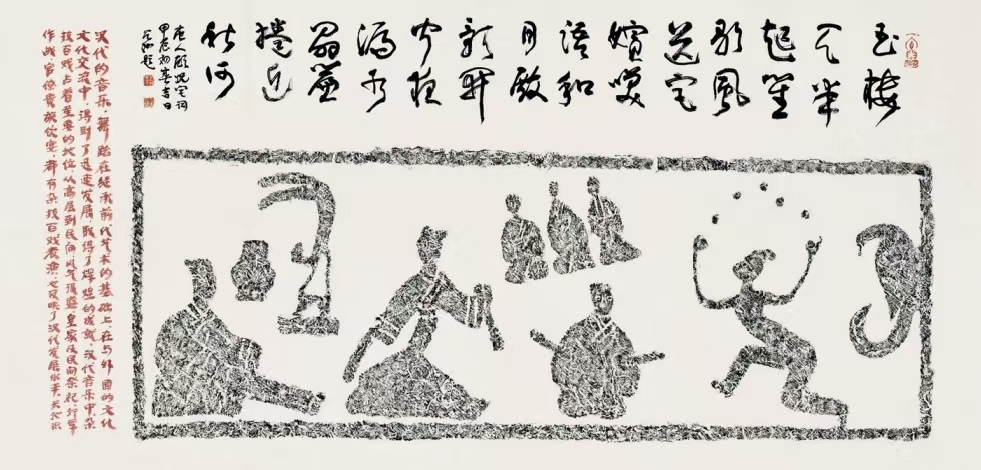 玉樓
天半
起笙
歌風
送宮
嬪笑
語和
月殿
影開
聞夜
漏水
晶簾
捲近
秋河
唐人顾况宫词
甲辰初春吉日
题
汉代的音乐、舞蹈在继承前代艺术的基础上,在与外国的文化
文化交流中,得到了迅速发展,取得了辉煌的成就,汉代音乐中,杂
技百戏占着重要的地位,从高层到民间风气强盛,皇家及民间祭祀,行军
作战,官僚贵族饮宴,都有杂技百戏表演,也反映了汉代发展水平,